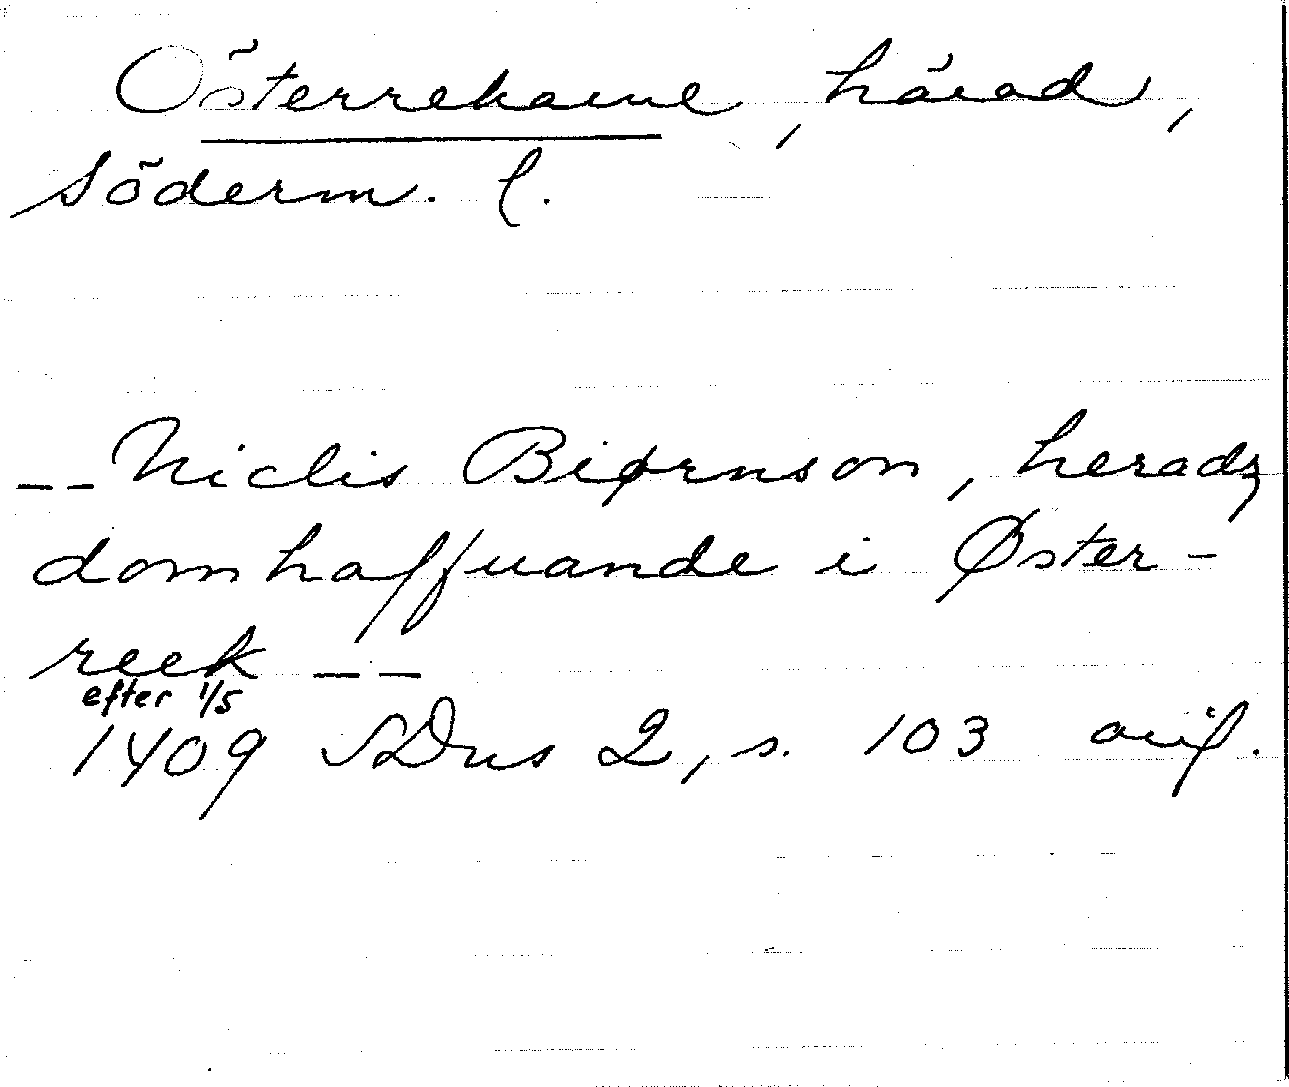 Österrekarne, härad,
Söderm. l.
-- Niclis Biørnson, heradz
domhaffuande i Øster-
reek --
efter 1/5
1409 SDns 2, s. 103 avs.